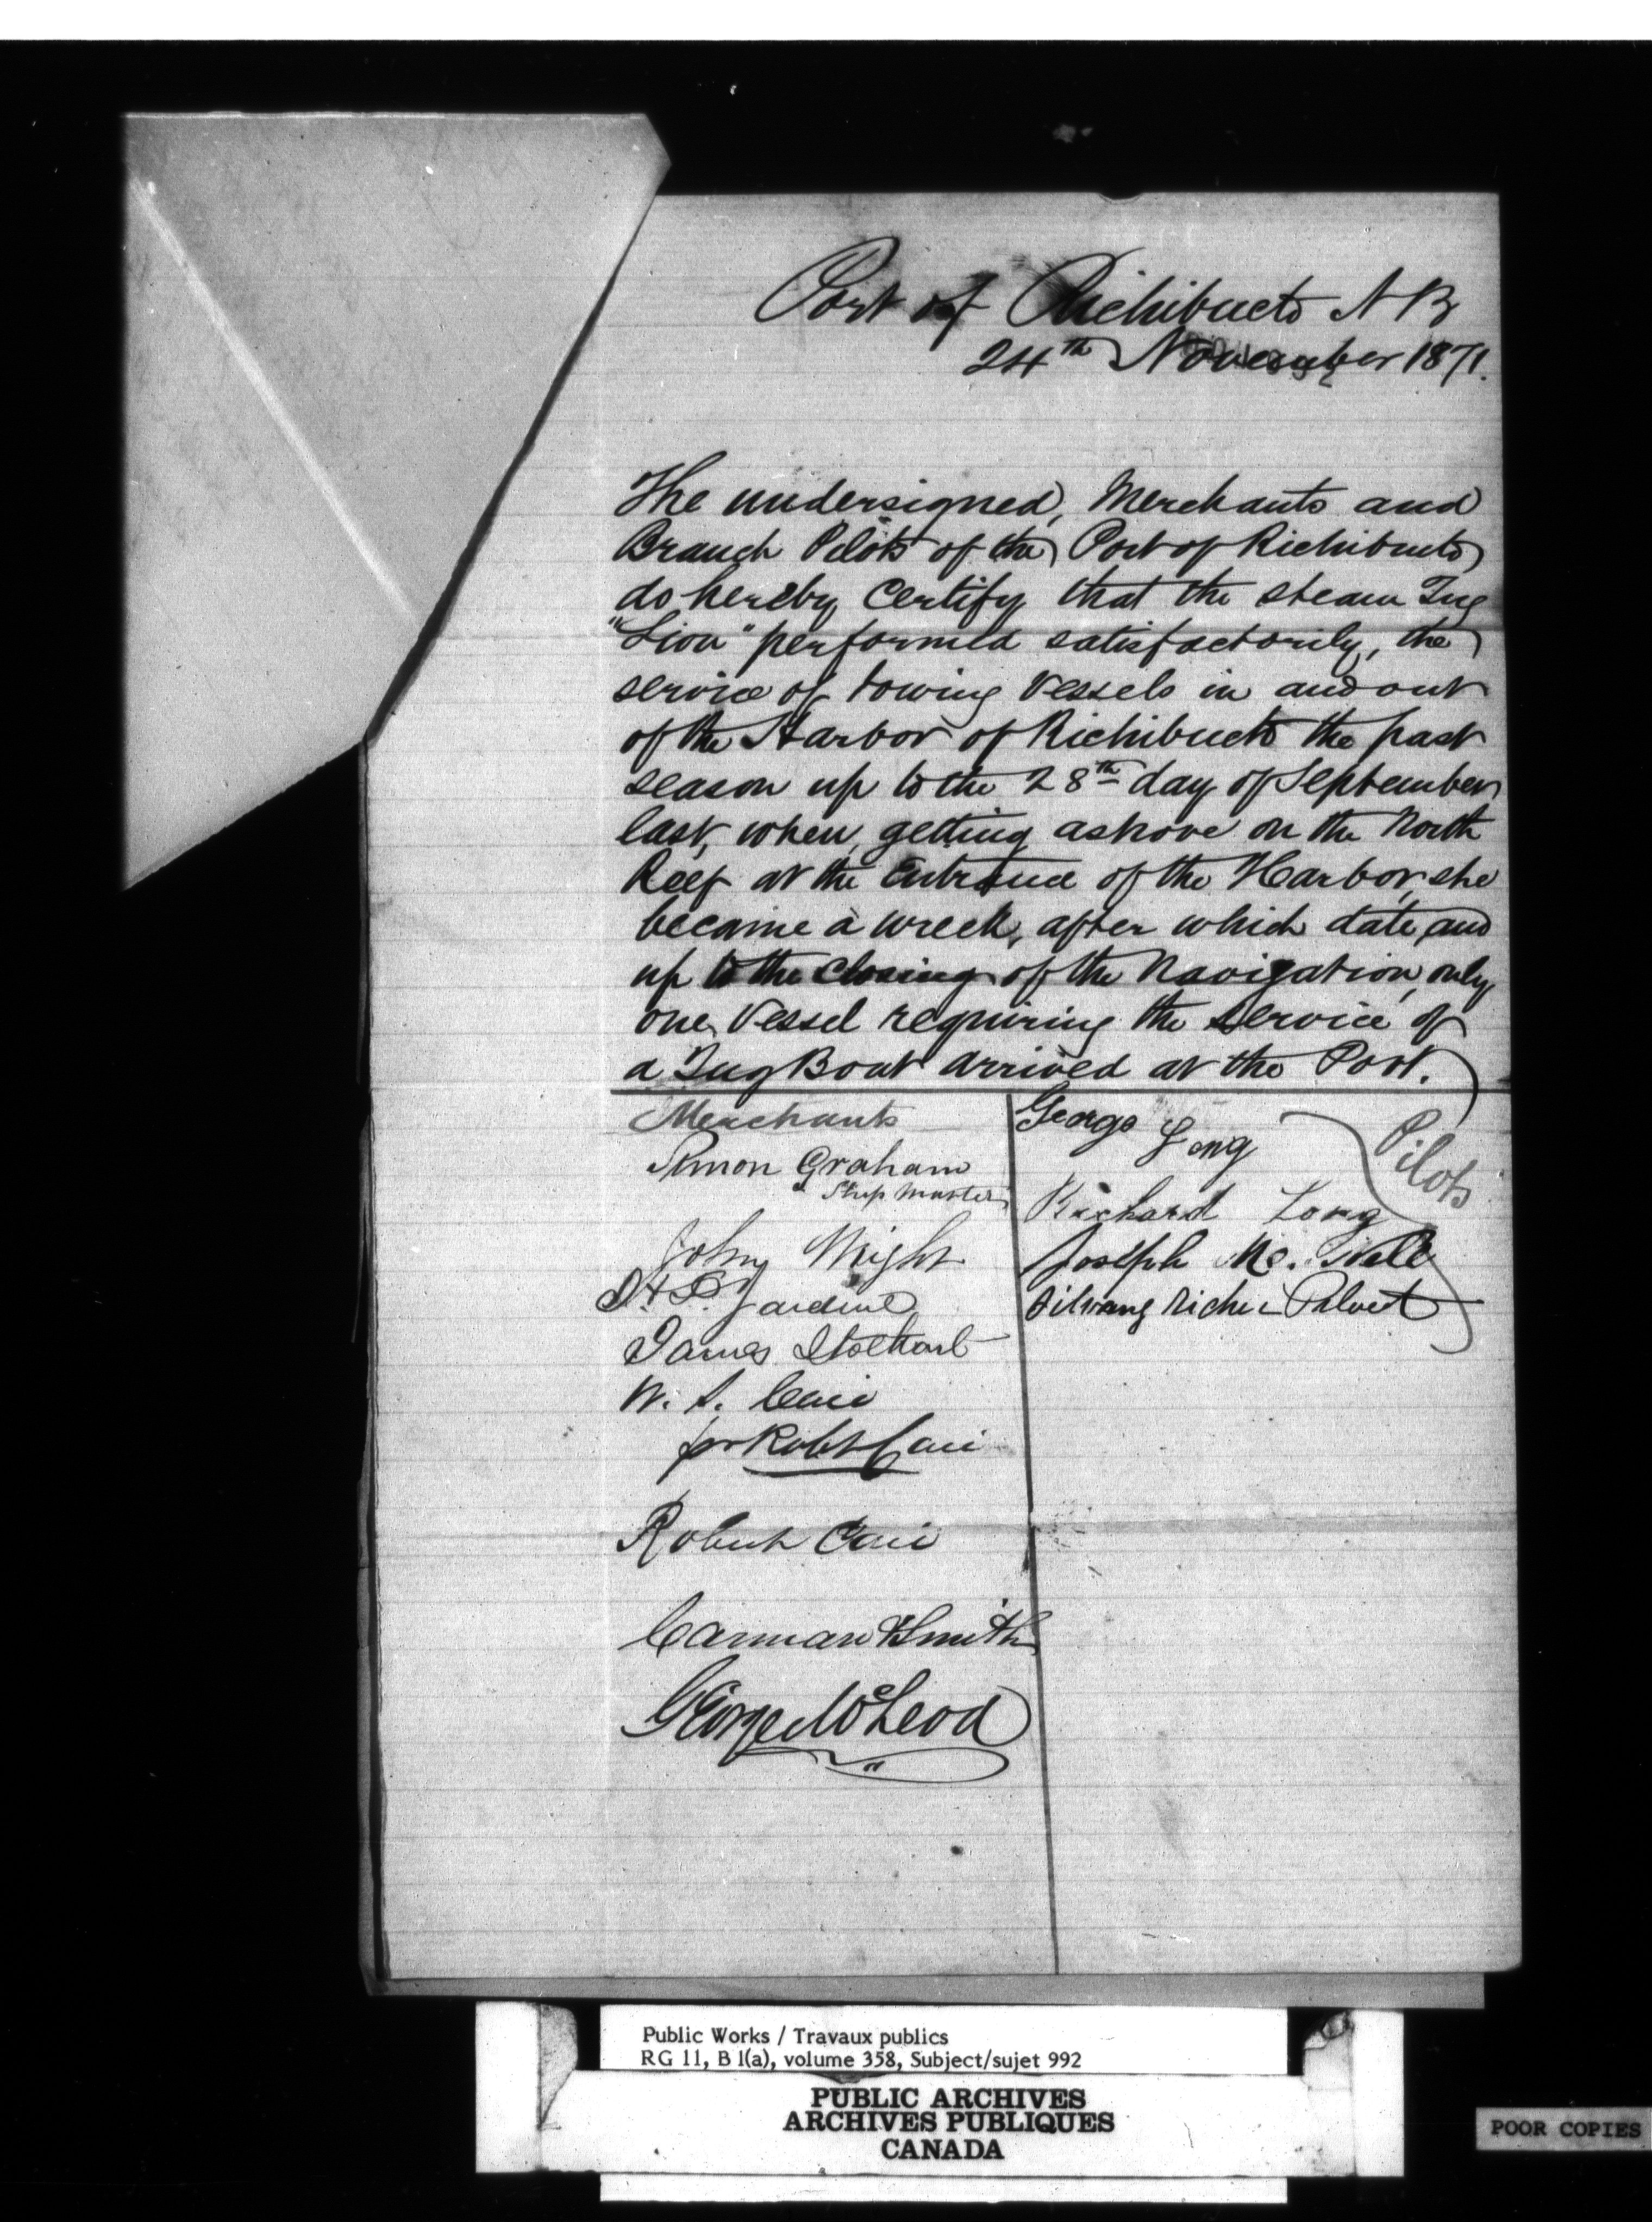 Port of Richibucto N B
24th November 1871.
The undersigned, Merchants and
Branch Pilots of the Port of Richibucto
do hereby Certify that the steam Tug
"Lion" performed satisfactorily, the
service of towing Vessels in and out
of the Harbor of Richibucto the past
season up to the 28th day of September
last, when, getting ashore on the North
Reef at the Entrance of the Harbor, she
became a wreck, after which date, and
up to the Closing of the Navigation, only
one Vessel requiring the service of
a Tug Boat arrived at the Port.
Merchants
Simon Graham
Ship Master
John Wright
Jardine
James Stothart
W. S. Caie
for Robt Caie
Robert Caie
Carman Smith
George McLeod
George Long
Richard Long
Joseph Mc.
Pilots
Public Works / Travaux publics
RG 11, B 1(a), volume 358, Subject/sujet 992
PUBLIC ARCHIVES
ARCHIVES PUBLIQUES
CANADA
POOR COPIES